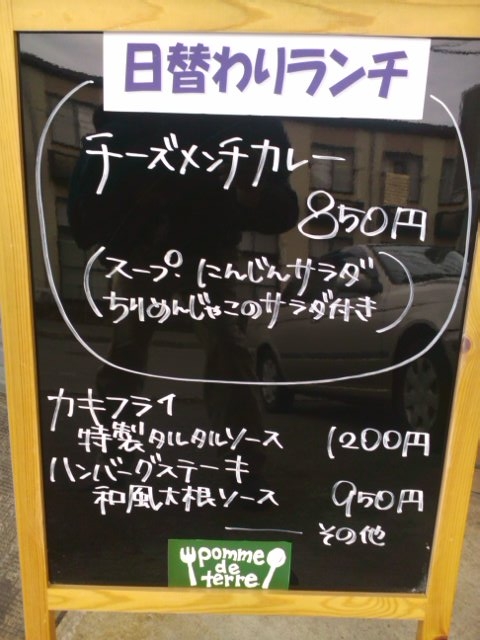 日替わりランチ
チーズメンチカレー
850円
(スープ・にんじんサラダ
ちりめんじゃこのサラダ付き)
カキフライ
特製タルタルソース 1200円
ハンバーグステーキ
和風大根ソース 950円
―― その他
pomme
de
terre